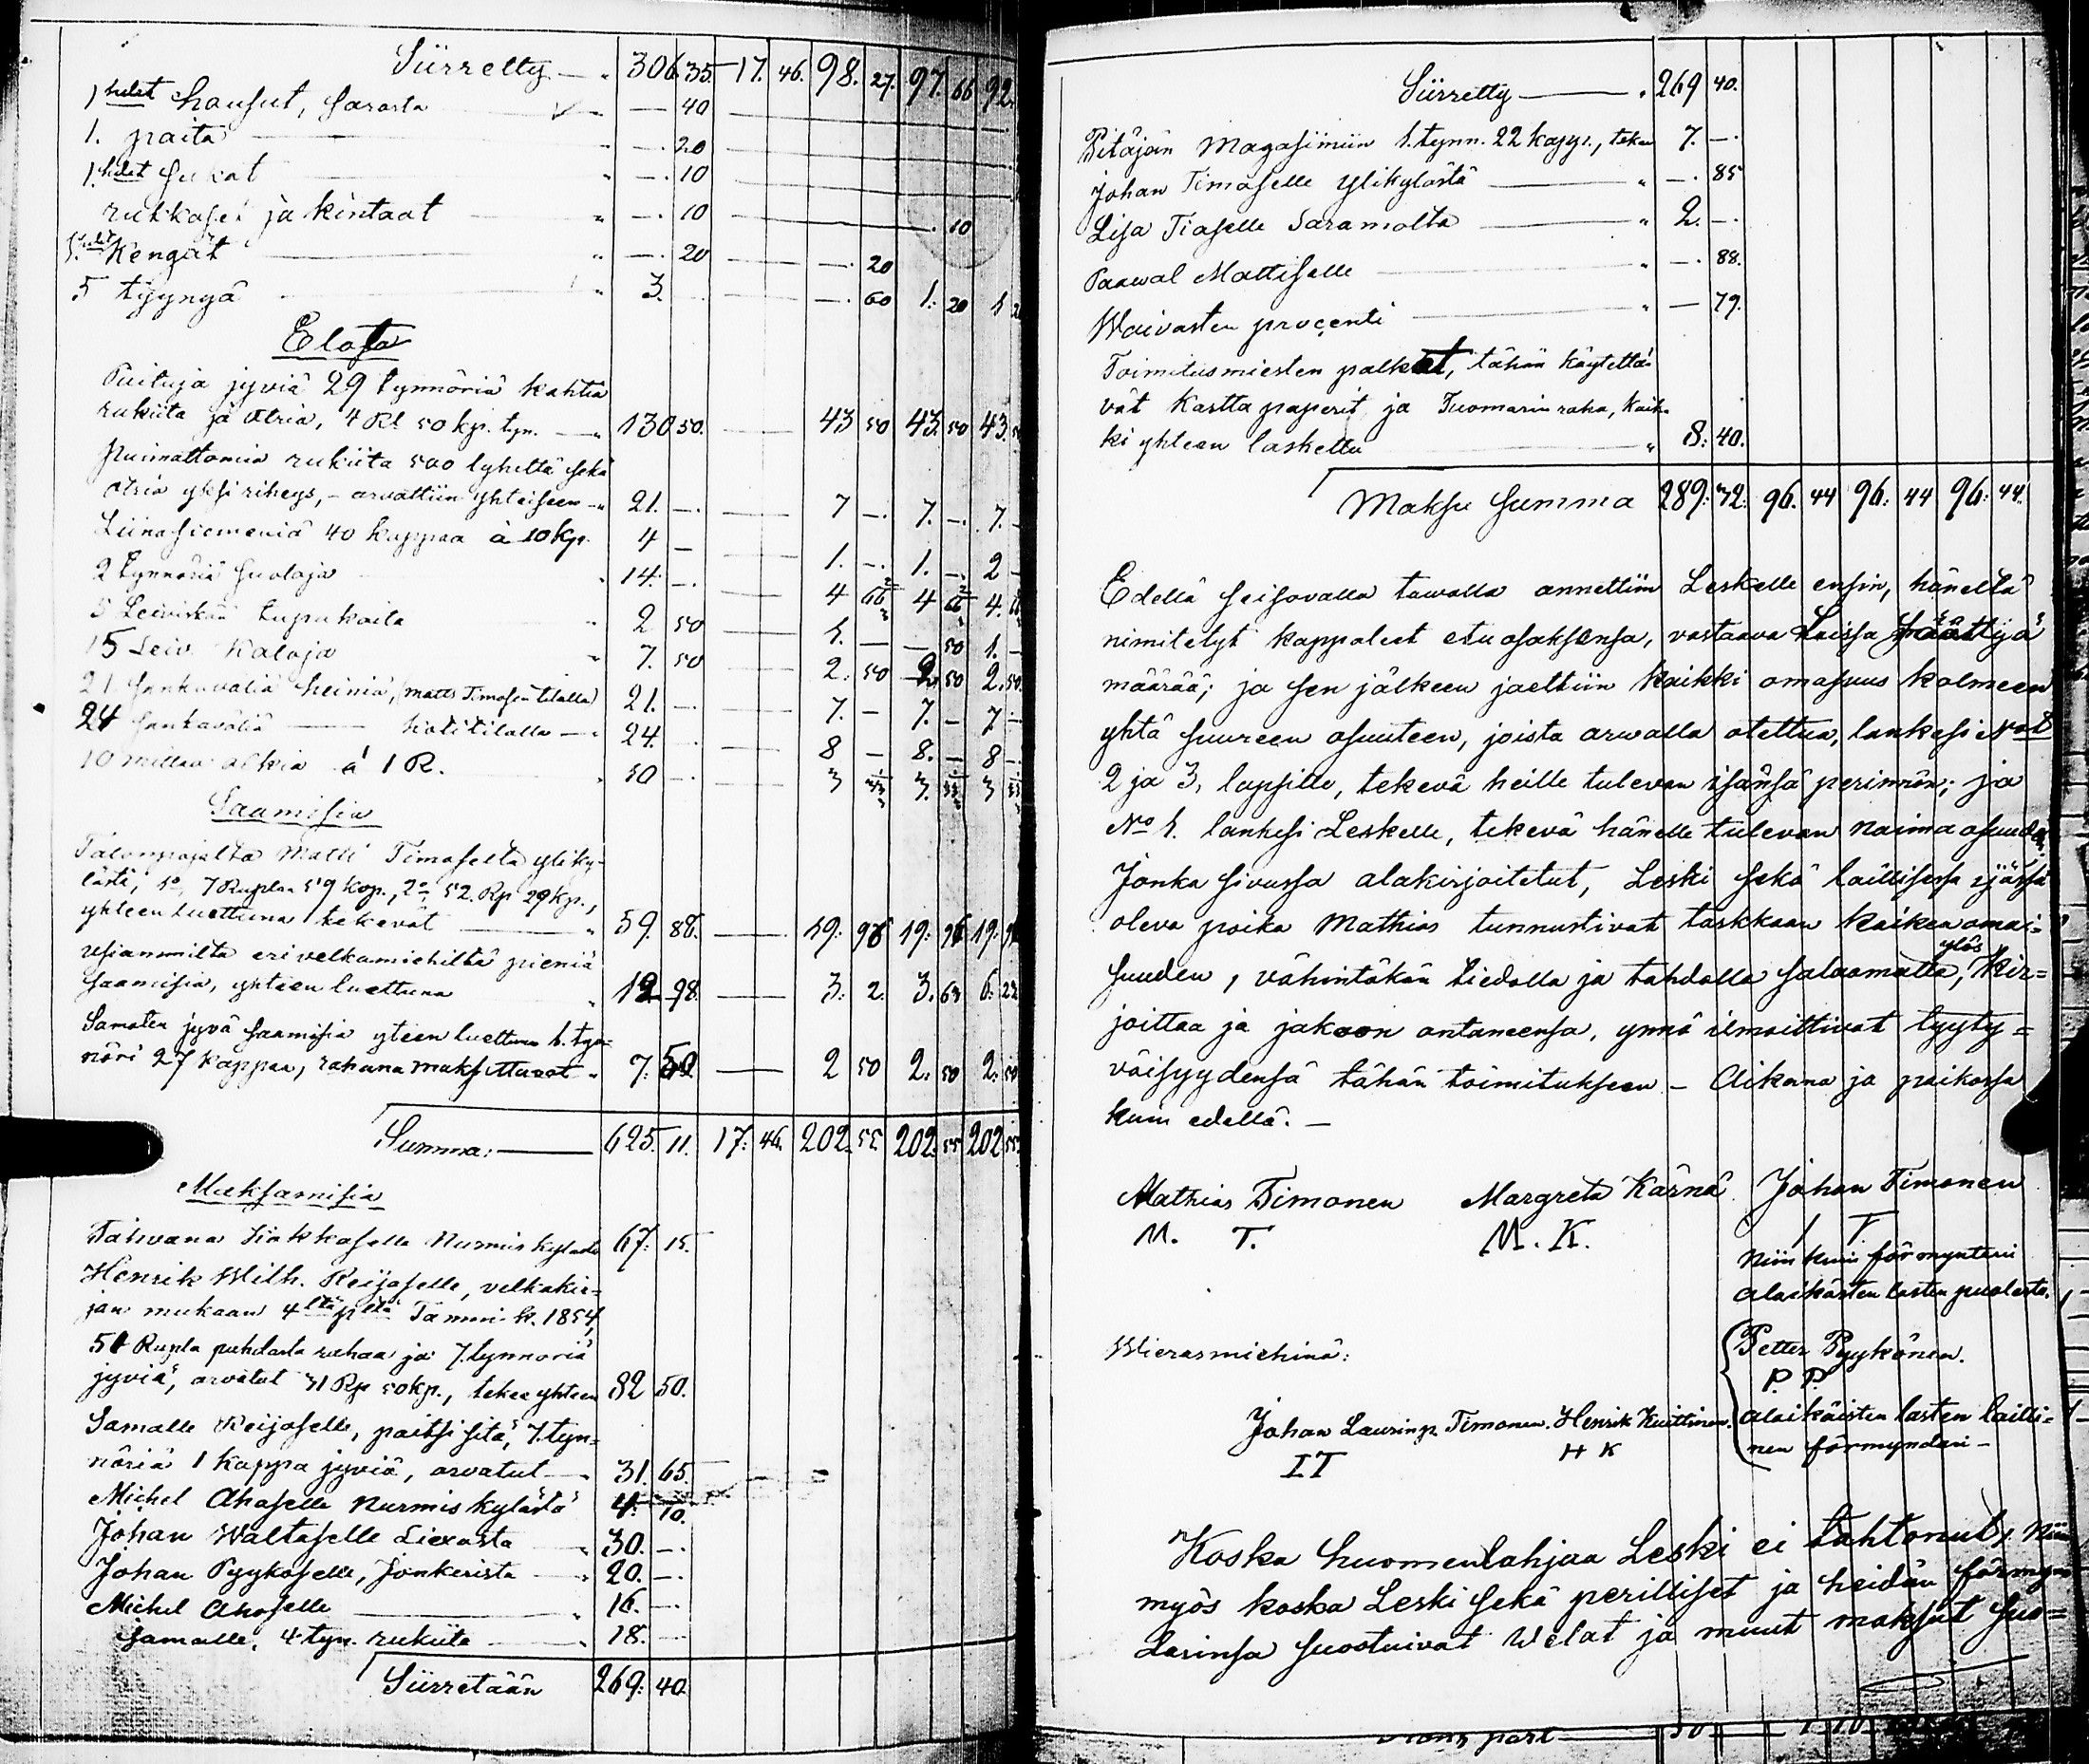 Siirretty — " 306. 35. 17. 46. 98. 27. 97. 66 92.
1 hdet housut, sarasta — 40
1. paita — 20
1. hdet sukat " — 10
rukkaset ja kintaat " — 10 — 10
1. hdet Kengät " — 20 — 20
5 tyynyä " 3. — 60 1. 20 1 20
Eloja
Puituja jyviä 29 tynnöriä kahtia
rukiita ja otria, 4 Rl 50 kp. tyn. — " 130 50. 43 50 43. 50 43.
Puimattomia rukiita 500 lyhettä sekä
otria yksi riheys, - arvattiin yhteiseen - " 21. — 7 — 7. — 7. —
Liinasiemeniä 40 kappaa à 10 kp. 4 — 1. — 1. — 2 —
2 tynnöriä suoloja " 14. — 4 66 2/3 4 66 2/3 4.
5 Leiviskää tupakoita " 2 50 1. — — 50 1. —
15 Leiv. Kaloja " 7. 50 2. 50 2. 50 2. 50
21 sankaväliä heiniä, (Matts Timosen tilalla) 21. — 7. — 7. — 7 —
24 sankaväliä — kotitilalla — " 24. — 8 — 8. — 8 —
10 millan olkia à 1 R. " 10 — 3 33 1/3 3. 33 1/3 3
Saamisia
Talonpojalta Matti Timoselta yliky-
lästä, 1o, 7 Ruplaa 59 kop., 2o 52. Rp 29 kp.,
yhteen luettuna tekevät " 59. 88. 19. 96 19. 96 19.
Usiammilta eri velkamiehiltä pieniä
saamisia, yhteen luettuna " 12 98. 3. 2. 3. 63 6. 22
Samaten jyvä saamisia yteen luettuna 1. tyn-
nöri 27 kappaa, rahana maksettavat " 7. 50 2 50 2. 50 2. 50
Summa: — 625. 11. 17. 46. 202. 55 202. 55 202 55.
Maksamisia
Tahvana Kiakkaselle Nurmis kylästä 67. 15.
Henrik Wilh. Reijoselle, velkakir-
jan mukaan 4ltä pltä Tammi-k. 1854,
51 Rupla puhdasta rahaa ja 7. tynnöriä
jyviä, arvatut 31 Rp 50 kp., tekee yhteen 82 50.
Samalle Reijoselle, paitsi sitä, 7. tyn-
nöriä 1 kappa jyviä, arvatut — " 31. 65.
Michel Ahoselle Nurmis kylästä 4. 10.
Johan Waltoselle Liexasta — " 30. —
Johan Pyykoselle, Jonkerista — " 20. —
Michel Ahoselle — " 16. —
Samalle, 4 tyn. rukiita — " 18. —
Siirretään 269. 40.
Siirretty — " 269 40.
Pitäjän Magasiiniin 1. tynn. 22 kapp., tekee 7. —
Johan Timoselle Ylikylästä — " — 85
Lisa Tiaselle Saramolta — " 2. —
Paawal Mattiselle — " — 88.
Waivasten procenti — " — 79.
Toimitusmiesten palkat, tähän käytettä-
vät Kartta paperit ja Tuomarin raha, kaik-
ki yhteen laskettu — " 8. 40.
Maksu Summa 289. 32. 96. 44 96. 44 96. 44.
Edellä seisovalla tawalla annettiin Leskelle ensin, häneltä
nimitetyt kappaleet etuosaksensa, vastaava Laissa säättyä
määrää; ja sen jälkeen jaettiin kaikki omasuus kolmeen
yhtä suureen osuuteen, joista arwalla otettua, lankesi Not
2 ja 3, lapsille, tekevä heille tulevan isänsä perinnön; ja
No 1. lankesi Leskelle, tekevä hänelle tulevan naima osuuden.
Jonka sivussa alakirjoitetut, Leski sekä laillisessa ijässä
oleva poika Mathias tunnustivat tarkkaan kaiken omai-
suuden, vähintäkän tiedolla ja tahdolla salaamatta, ylös kir-
joittaa ja jakoon antaneensa, ynnä ilmoittivat tyyty-
väisyydensä tähän toimitukseen — Aikana ja paikassa
kuin edellä. —
Mathias Timonen Margreta Kärnä Johan Timonen
M. T. M. K. I T
Niin kuin förmynteri
alaikästen lasten puolesta.
Wierasmiehinä: Petter Pyykönen.
P. P.
Johan Laurinp. Timonen. Henrik Kuittinen. alaikäisten lasten lailli-
I T H K nen förmynderi —
Koska huomenlahjaa Leski ei tahtonut, Niin
myös koska Leski sekä perilliset ja heidän förmyn-
derinsa suostuivat Welat ja muut maksut suo-